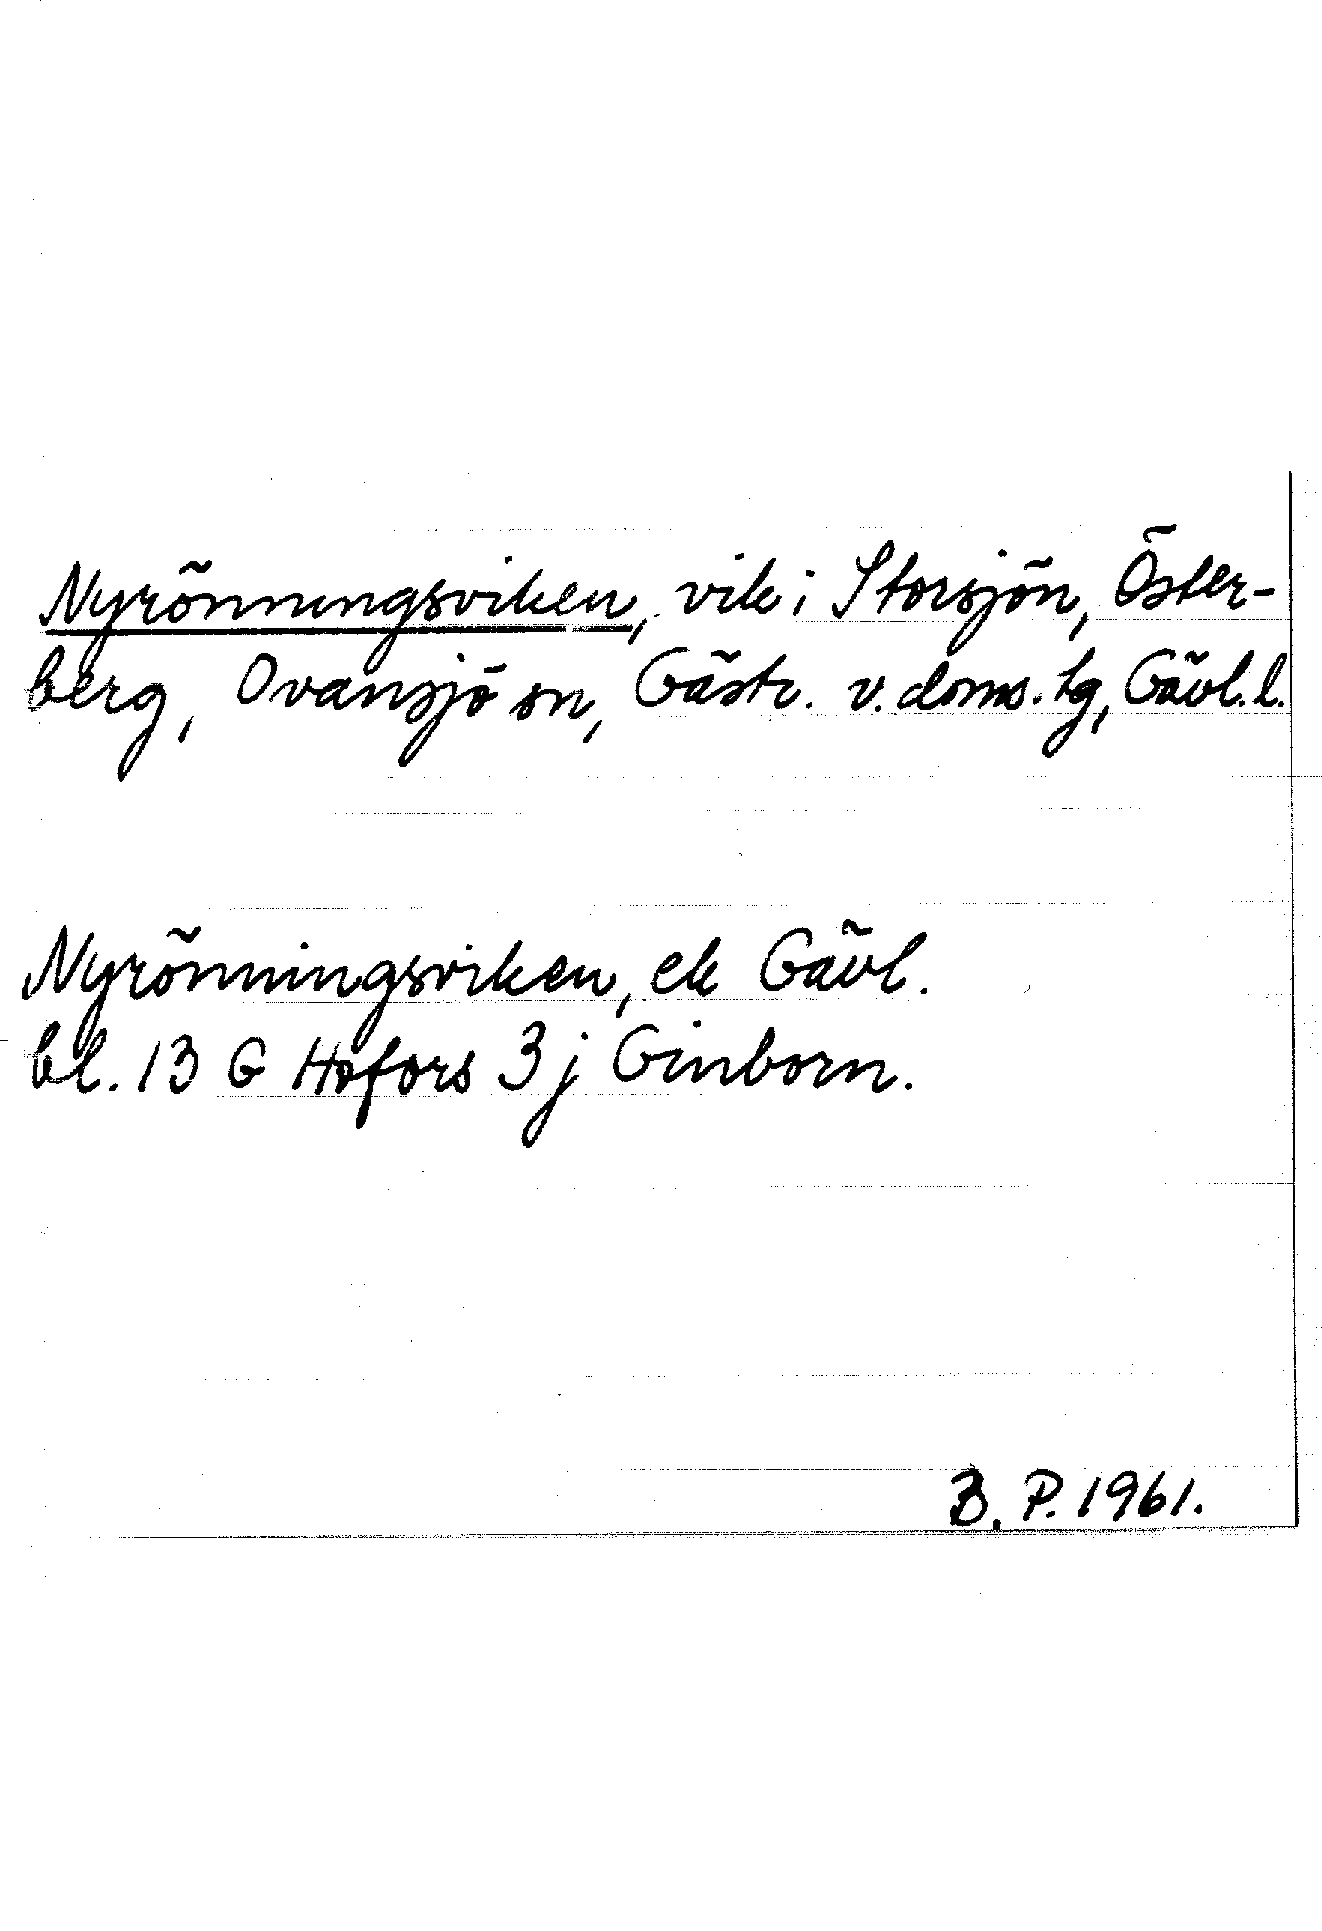 Nyrönningsviken, vik i Storsjön, Öster-
berg, Ovansjö sn, Gästr. v. doms. tg, Gävl. l.
Nyrönningsviken, ek Gävl.
bl. 13 G Hofors 3 j Ginborn.
B. P. 1961.